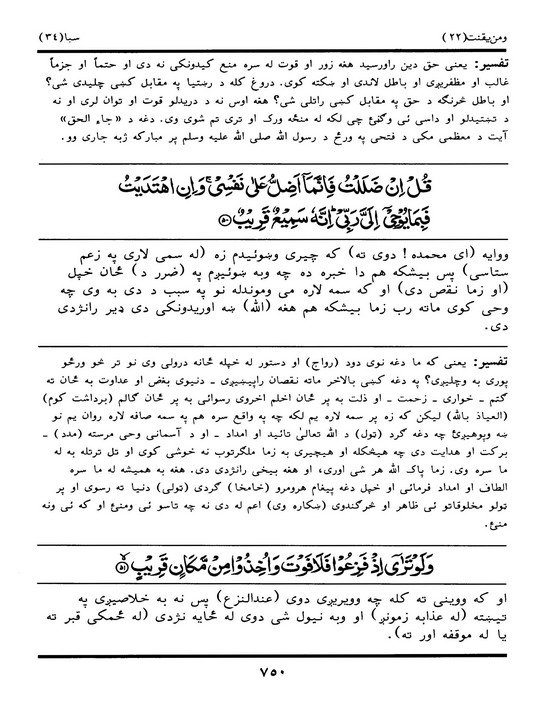 ومن یقنت(۲۲)
سبا(۳۴)
تفسیر: یعنی حق دین راورسید هغه زور او قوت له سره منع کیدونکی نه دی او حتماً او جزماً
غالب او مظفریږي او باطل لاندی او ښکته کوی. دروغ کله د رښتیا په مقابل کښی چلیدی شی؟
او باطل څرنګه د حق په مقابل کښی راتلی شی؟ هغه اوس نه د دریدلو قوت او توان لری او نه
د تښتیدلو او داسی ئی وګڼئ چی لکه له منځه ورک او تری تم شوی وی. دغه د «جاء الحق»
آیت د معظمی مکی د فتحی په ورځ د رسول الله صلی الله علیه وسلم پر مبارکه ژبه جاری وو.
قُلْ اِنْ ضَلَلْتُ فَاِنَّمَآ اَضِلُّ عَلٰى نَفْسِيْ ۚ وَاِنِ اهْتَدَيْتُ
فَبِمَا يُوْحِيْٓ اِلَيَّ رَبِّيْ ؕ اِنَّهٗ سَمِيْعٌ قَرِيْبٌ ۵۰
ووایه (ای محمده! دوی ته) که چیری وښوئیدم زه (له سمی لاری په زعم
ستاسی) پس بیشکه هم دا خبره ده چه وبه ښوئیږم په (ضرر د) ځان خپل
(او زما نقص دی) او که سمه لاره می وموندله نو په سبب د دی به وی چه
وحی کوی ماته رب زما بیشکه هم هغه (الله) ښه اوریدونکی دی ډیر رانژدی
دی.
تفسیر: یعنی که ما دغه نوی دود (رواج) او دستور له خپله ځانه درولی وی نو تر څو ورځو
پوری به وچلیږی؟ په دغه کښی بالاخر ماته نقصان راپیښیږی ـ دنیوی بغض او عداوت به ځان ته
ګټم ـ خواری ـ زحمت ـ او ذلت به پر ځان اخلم اخروی رسوائی به پر ځان ګالم (برداشت کوم)
(العیاذ بالله) لیکن که زه پر سمه لاره یم لکه چه په واقع سره هم په سمه صافه لاره روان یم نو
ښه وپوهیږئ چه دغه ګرد (ټول) د الله تعالیٰ تائید او امداد ـ او د آسمانی وحی مرسته (مدد) ـ
برکت او هدایت دی چه هیڅکله او هیچیری به زما ملګرتوب نه خوشی کوی او تل ترتله به له
ما سره وی. زما پاک الله هر شی اوری، او هغه بیخی رانژدی دی. هغه به همیشه له ما سره
الطاف او امداد فرمائی او خپل دغه پیغام هرومرو (خامخا) ګردی (ټولی) دنیا ته رسوی او پر
ټولو مخلوقاتو ئی ظاهر او څرګندوی (ښکاره وی) اعم له دی نه چه تاسو ئی ومنئ او که ئی ونه
منئ.
وَلَوْ تَرٰٓى اِذْ فَزِعُوْا فَلَا فَوْتَ وَاُخِذُوْا مِنْ مَّكَانٍ قَرِيْبٍ ۵۱
او که ووینی ته کله چه وویریږی دوی (عندالنزع) پس نه به خلاصیږی په
تیښته (له عذابه زمونږ) او وبه نیول شی دوی له ځایه نژدی (له ځمکی قبر ته
یا له موقفه اور ته).
۷۵۰